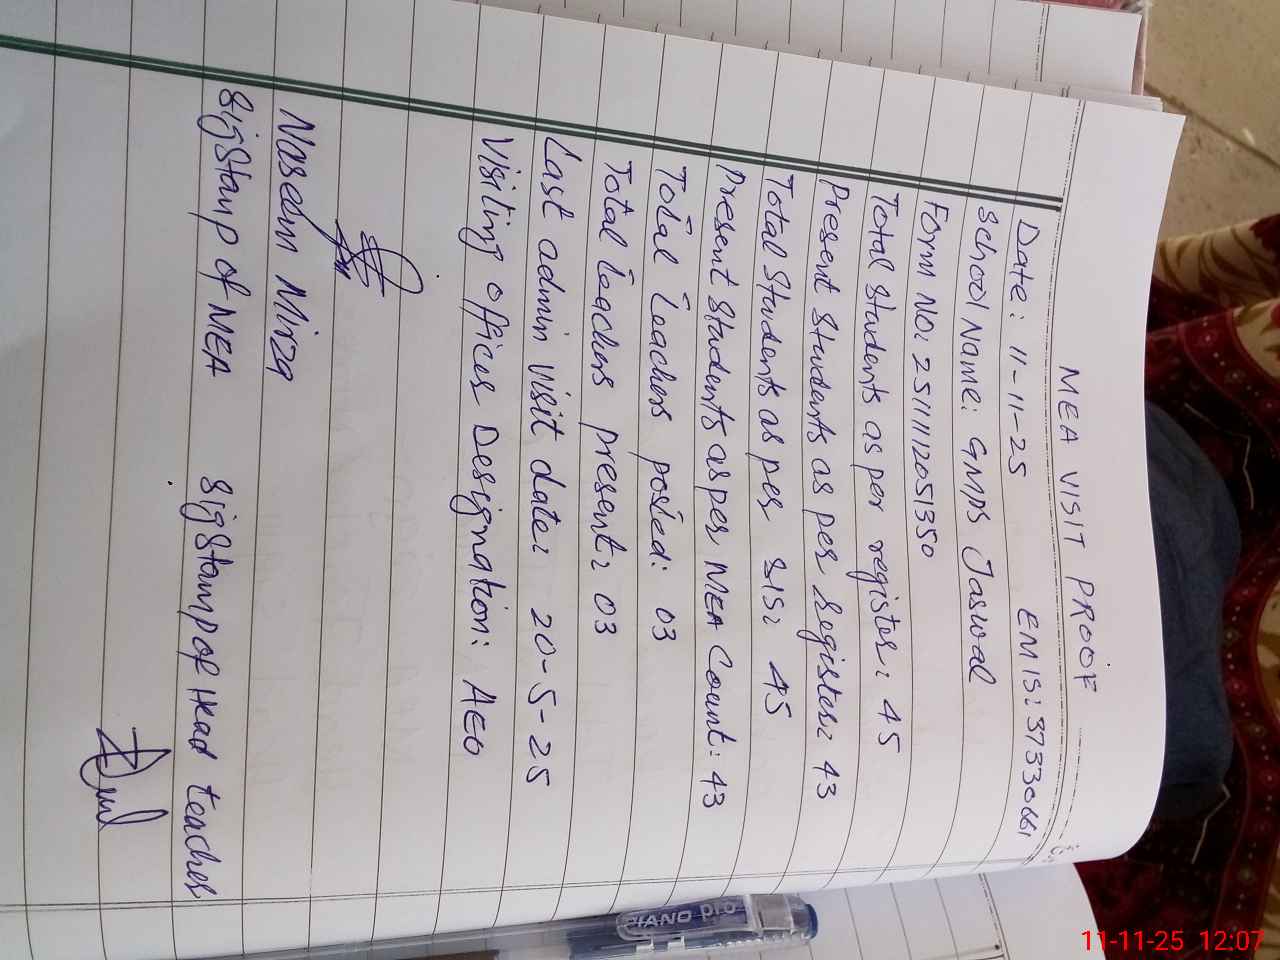 MEA VISIT PROOF
Date: 11-11-25 EMIS: 37330661
School Name: GMPS Jaswal
Form NO: 25111112051350
Total students as per register: 45
Present Students as per Register: 43
Total Students as per SIS: 45
Present Students as per MEA Count: 43
Total Teachers posted: 03
Total Teachers present: 03
Last admin visit date: 20-5-25
Visiting officer Designation: AEO
Naseem Mirza
Sig Stamp of MEA Sig Stamp of Head teacher
PIANO pro
11-11-25 12:07